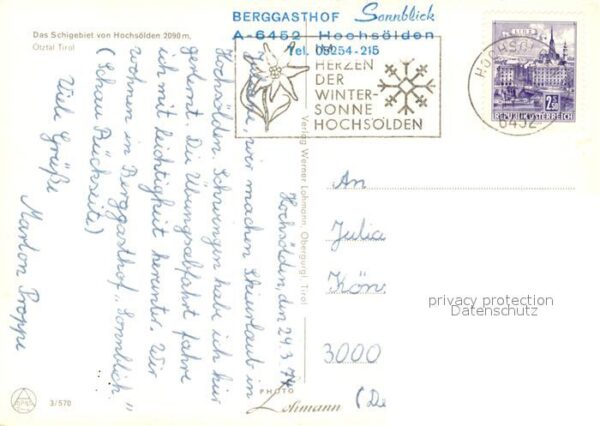 Das Schigebiet von Hochsölden 2090 m,
Ötztal Tirol
BERGGASTHOF Sonnblick
A-6452 Hochsölden
Tel. 05254-215
IM
HERZEN
DER
WINTER-
SONNE
HOCHSÖLDEN
LINZ
2.50
REPUBLIK ÖSTERREICH
6452
Hochsölden, den 29.3.74
wir machen Skiurlaub in
Hochsölden. Schwingen habe ich hier
gelernt. Die Übungsabfahrt fahre
ich mit Leichtigkeit herunter. Wir
wohnen in Berggasthof „Sonnblick"
(Schau Rückseite)
Viele Grüße
Marlon Proppe
Verlag Werner Lohmann, Obergurgl, Tirol
An
Julia
Kön
3000
(De
privacy protection
Datenschutz
3/570
PHOTO
Lohmann